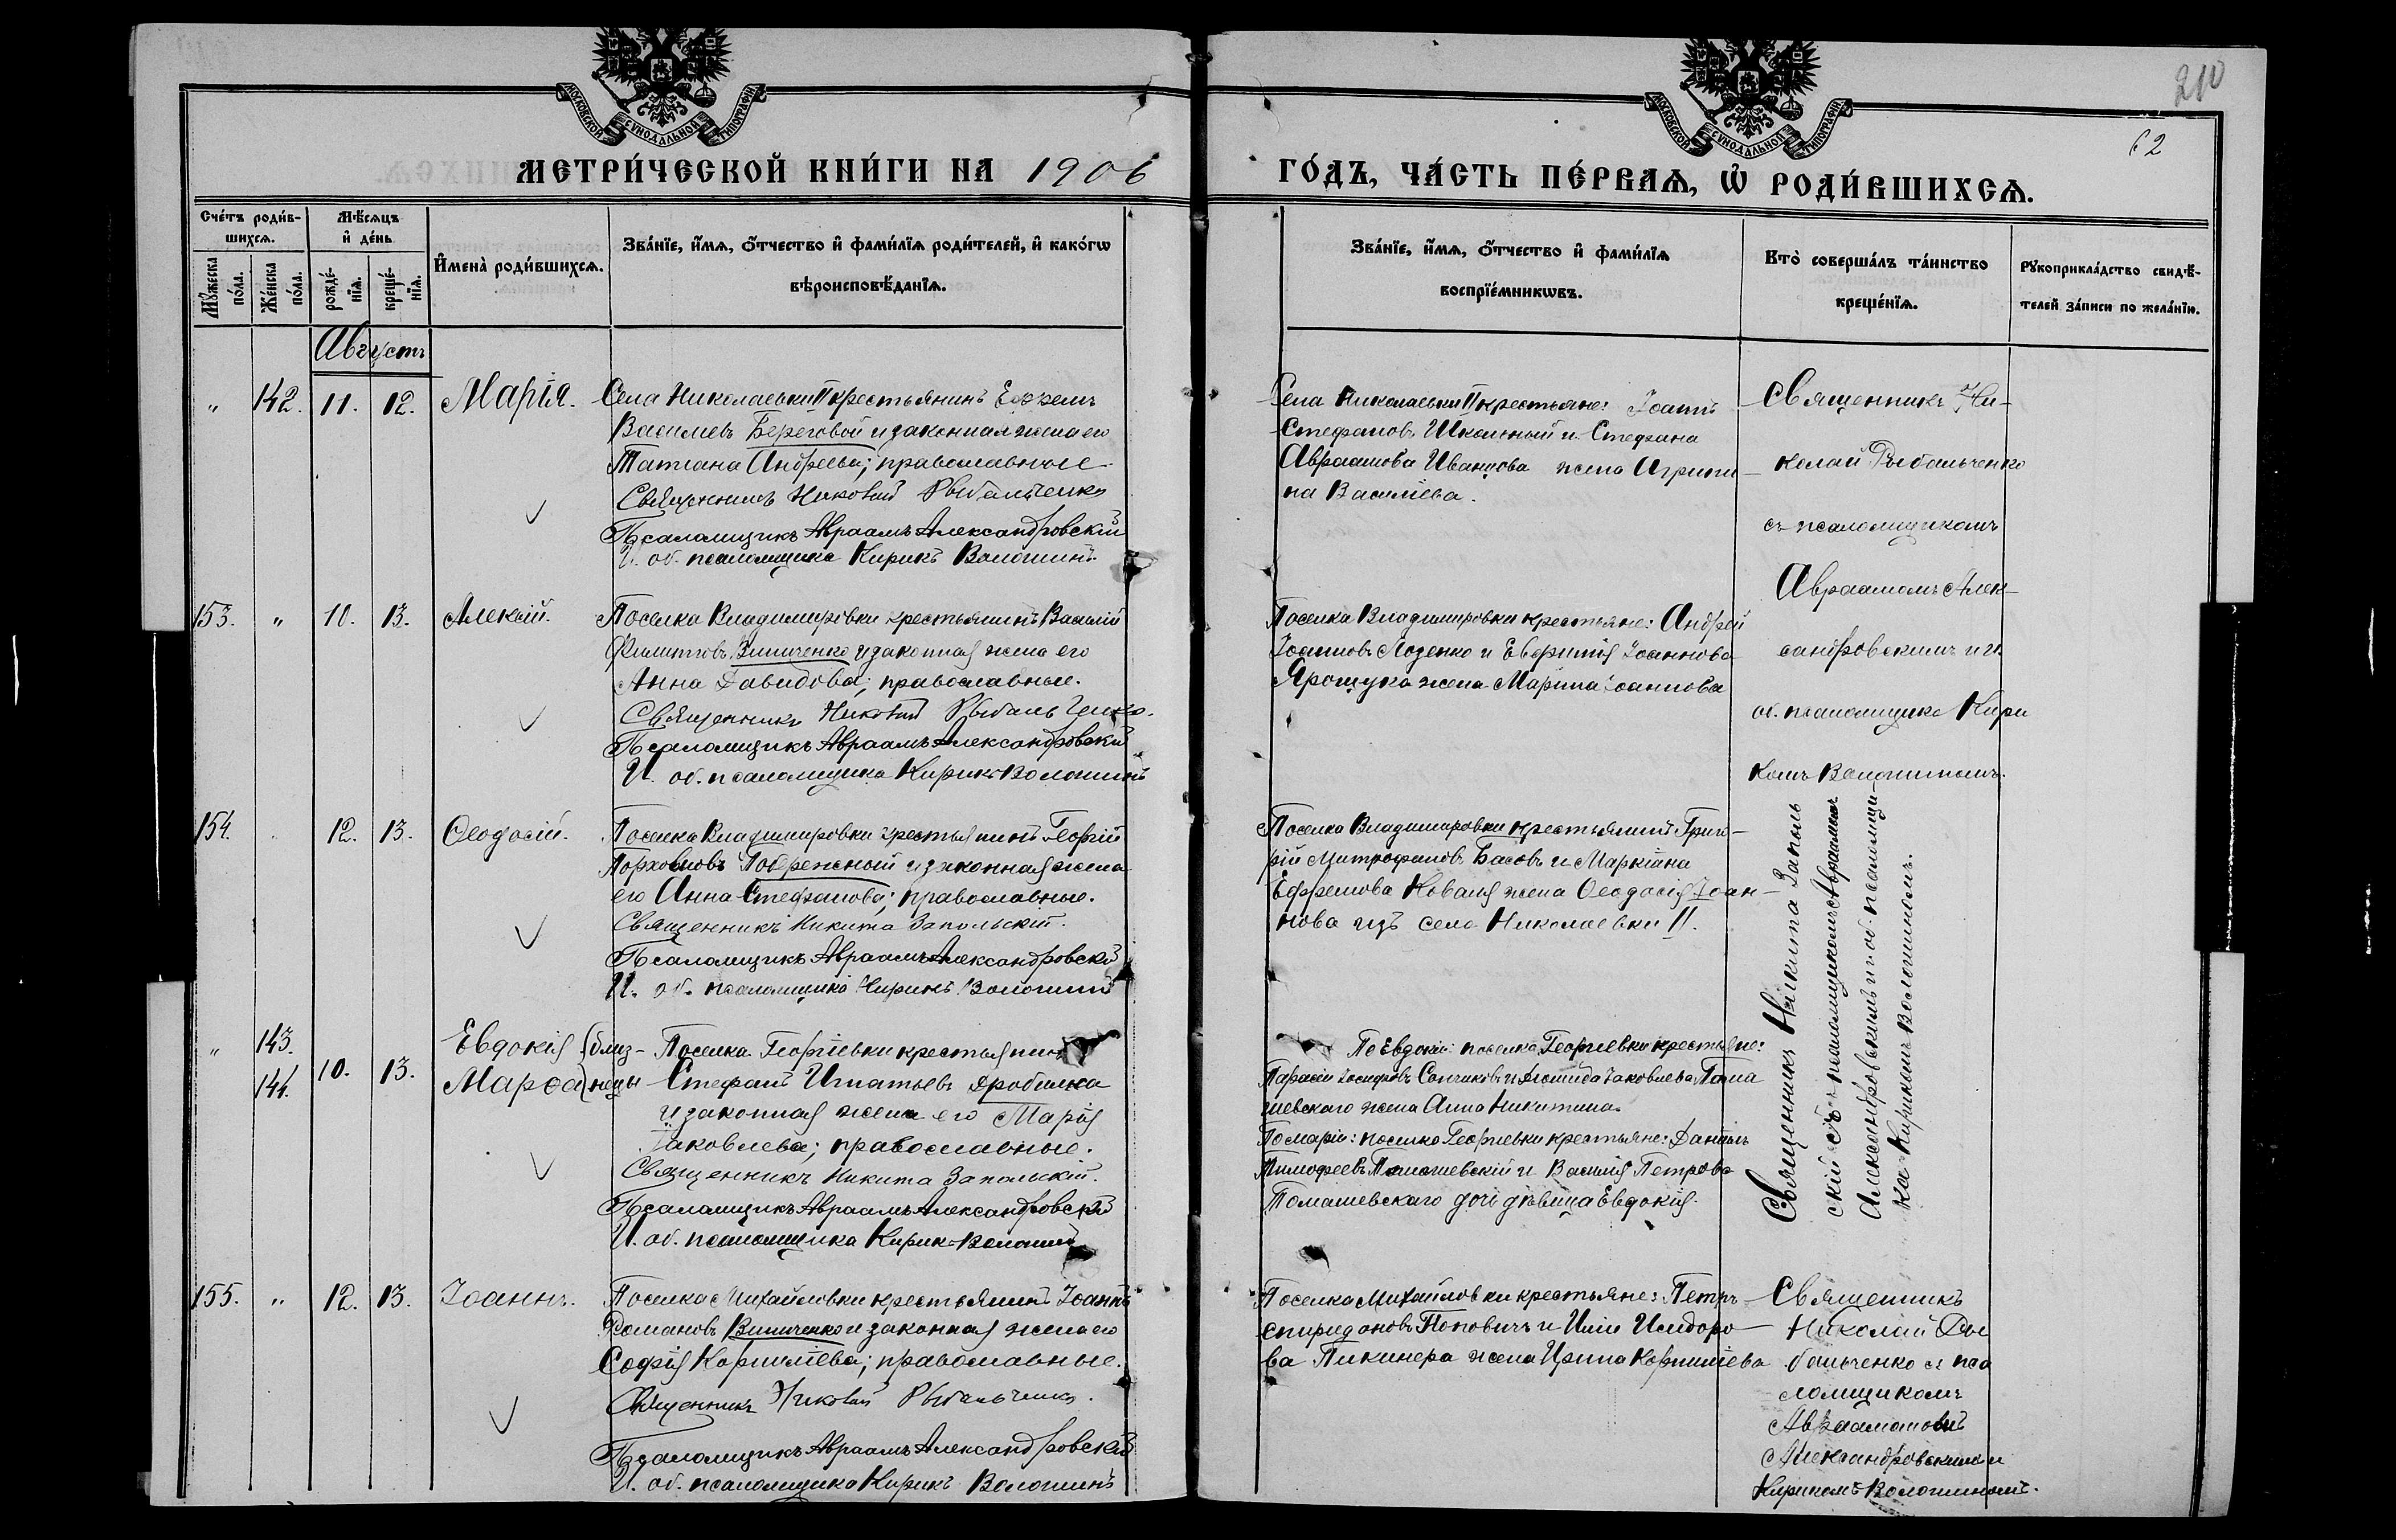 МОСКОВСКОЙ СѴНОДАЛЬНОЙ ТИПОГРАФІИ
МОСКОВСКОЙ СѴНОДАЛЬНОЙ ТИПОГРАФІИ
210
62
МЕТРИ́ЧЕСКОЙ КНИ́ГИ НА 1906
ГО́ДЪ, ЧА́СТЬ ПЕ́РВАѦ, Ѡ҆ РОДИ́ВШИХСѦ.
Сче́тъ роди́в-
шихсѧ.
Мꙋжеска по́ла.
Же́нска по́ла.
Мѣ́сѧцъ
и҆ де́нь
рожде́-
нїѧ.
креще́-
нїѧ.
И҆мена̀ роди́вшихсѧ.
Зва́нїе, и҆́мѧ, ѻ҆́тчество и҆ фами́лїѧ роди́телей, и҆ како́гѡ
вѣроисповѣ́данїѧ.
Зва́нїе, и҆́мѧ, ѻ҆́тчество и҆ фами́лїѧ
воспрїе́мникѡвъ.
Кто̀ соверша́лъ та́инство
креще́нїѧ.
Рꙋкоприкла́дство свидѣ́-
телей за́писи по жела́нїю.
Августъ
„ 142. 11. 12. Марія.
Села Николаевки II крестьянинъ Ефремъ
Василіевъ Береговой и законная жена его
Татіана Андреева; православные
Священникъ Николай Рыбальченко
Псаломщикъ Авраамъ Александровскій
И. об. псаломщика Кирикъ Волошинъ.
Села Николаевки II крестьяне: Іоаннъ
Стефановъ Школьный и Стефана
Авраамова Иванцова жена Агрипи-
на Василіева.
Священникъ Ни-
колай Рыбальченко
съ псаломщикомъ
Авраамомъ Алек-
сандровскимъ и и.
об. псаломщика Кири
комъ Волошиномъ.
153. „ 10. 13. Алексій.
Поселка Владимировки крестьянинъ Василій
Филипповъ Винниченко и законная жена его
Анна Давидова; православные.
Священникъ Николай Рыбальченко.
Псаломщикъ Авраамъ Александровскій
И. об. псаломщика Кирикъ Волошинъ
Поселка Владимировки крестьяне: Андрей
Іоанновъ Лозенко и Евфимія Іоаннова
Ярощука жена Марина Іоаннова
154. 12. 13. Ѳеодосій.
Поселка Владимировки крестьянинъ Георгій
Побережный и законная жена
его Анна Стефанова; православные.
Священникъ Никита Запольскій.
Псаломщикъ Авраамъ Александровскій
И. об. псаломщика Кирикъ Волошинъ
Поселка Владимировки крестьянинъ Григо-
рій Митрофановъ Басовъ и Маркіана
Ефремова Коваля жена Ѳеодосія Іоан-
нова изъ села Николаевки II.
Священникъ Никита Заполь
скій съ псаломщикомъ Авраамомъ
Александровскимъ и и. об. псаломщи-
ка Кирикомъ Волошиномъ.
„ 143. 144. 10. 13.
Евдокія (близ-
Марѳа (нецы
Поселка Георгіевки крестьянинъ
Стефанъ Игнатьевъ Яробилка
и законная жена его Марія
Іаковлева; православные.
Священникъ Никита Запольскій.
Псаломщикъ Авраамъ Александровскій
И. об. псаломщика Кирикъ Волошинъ
По Евдокіи: поселка Георгіевки крестьяне:
Іосифовъ и Іаковлева Тома
шевскаго жена Анна Никитина.
По Маріи: поселка Георгіевки крестьяне: Даніилъ
Тимофеевъ Томашевскій и Василія Петрова
Томашевскаго дочь дѣвица Евдокія.
155. „ 12. 13. Іоаннъ.
Поселка Михайловки крестьянинъ Іоаннъ
Романовъ Винниченко и законная жена его
Софія Корниліева; православные.
Священникъ Николай Рыбальченко.
Псаломщикъ Авраамъ Александровскій
И. об. псаломщика Кирикъ Волошинъ
Поселка Михайловки крестьяне: Петръ
Спиридоновъ Поповичъ и Иліи Исидоро-
ва Пикинера жена Ирина Корниліева
Священникъ
Николай Ры
бальченко съ пса
ломщикомъ
Авраамомъ
Александровскимъ и
Кирикомъ Волошиномъ.